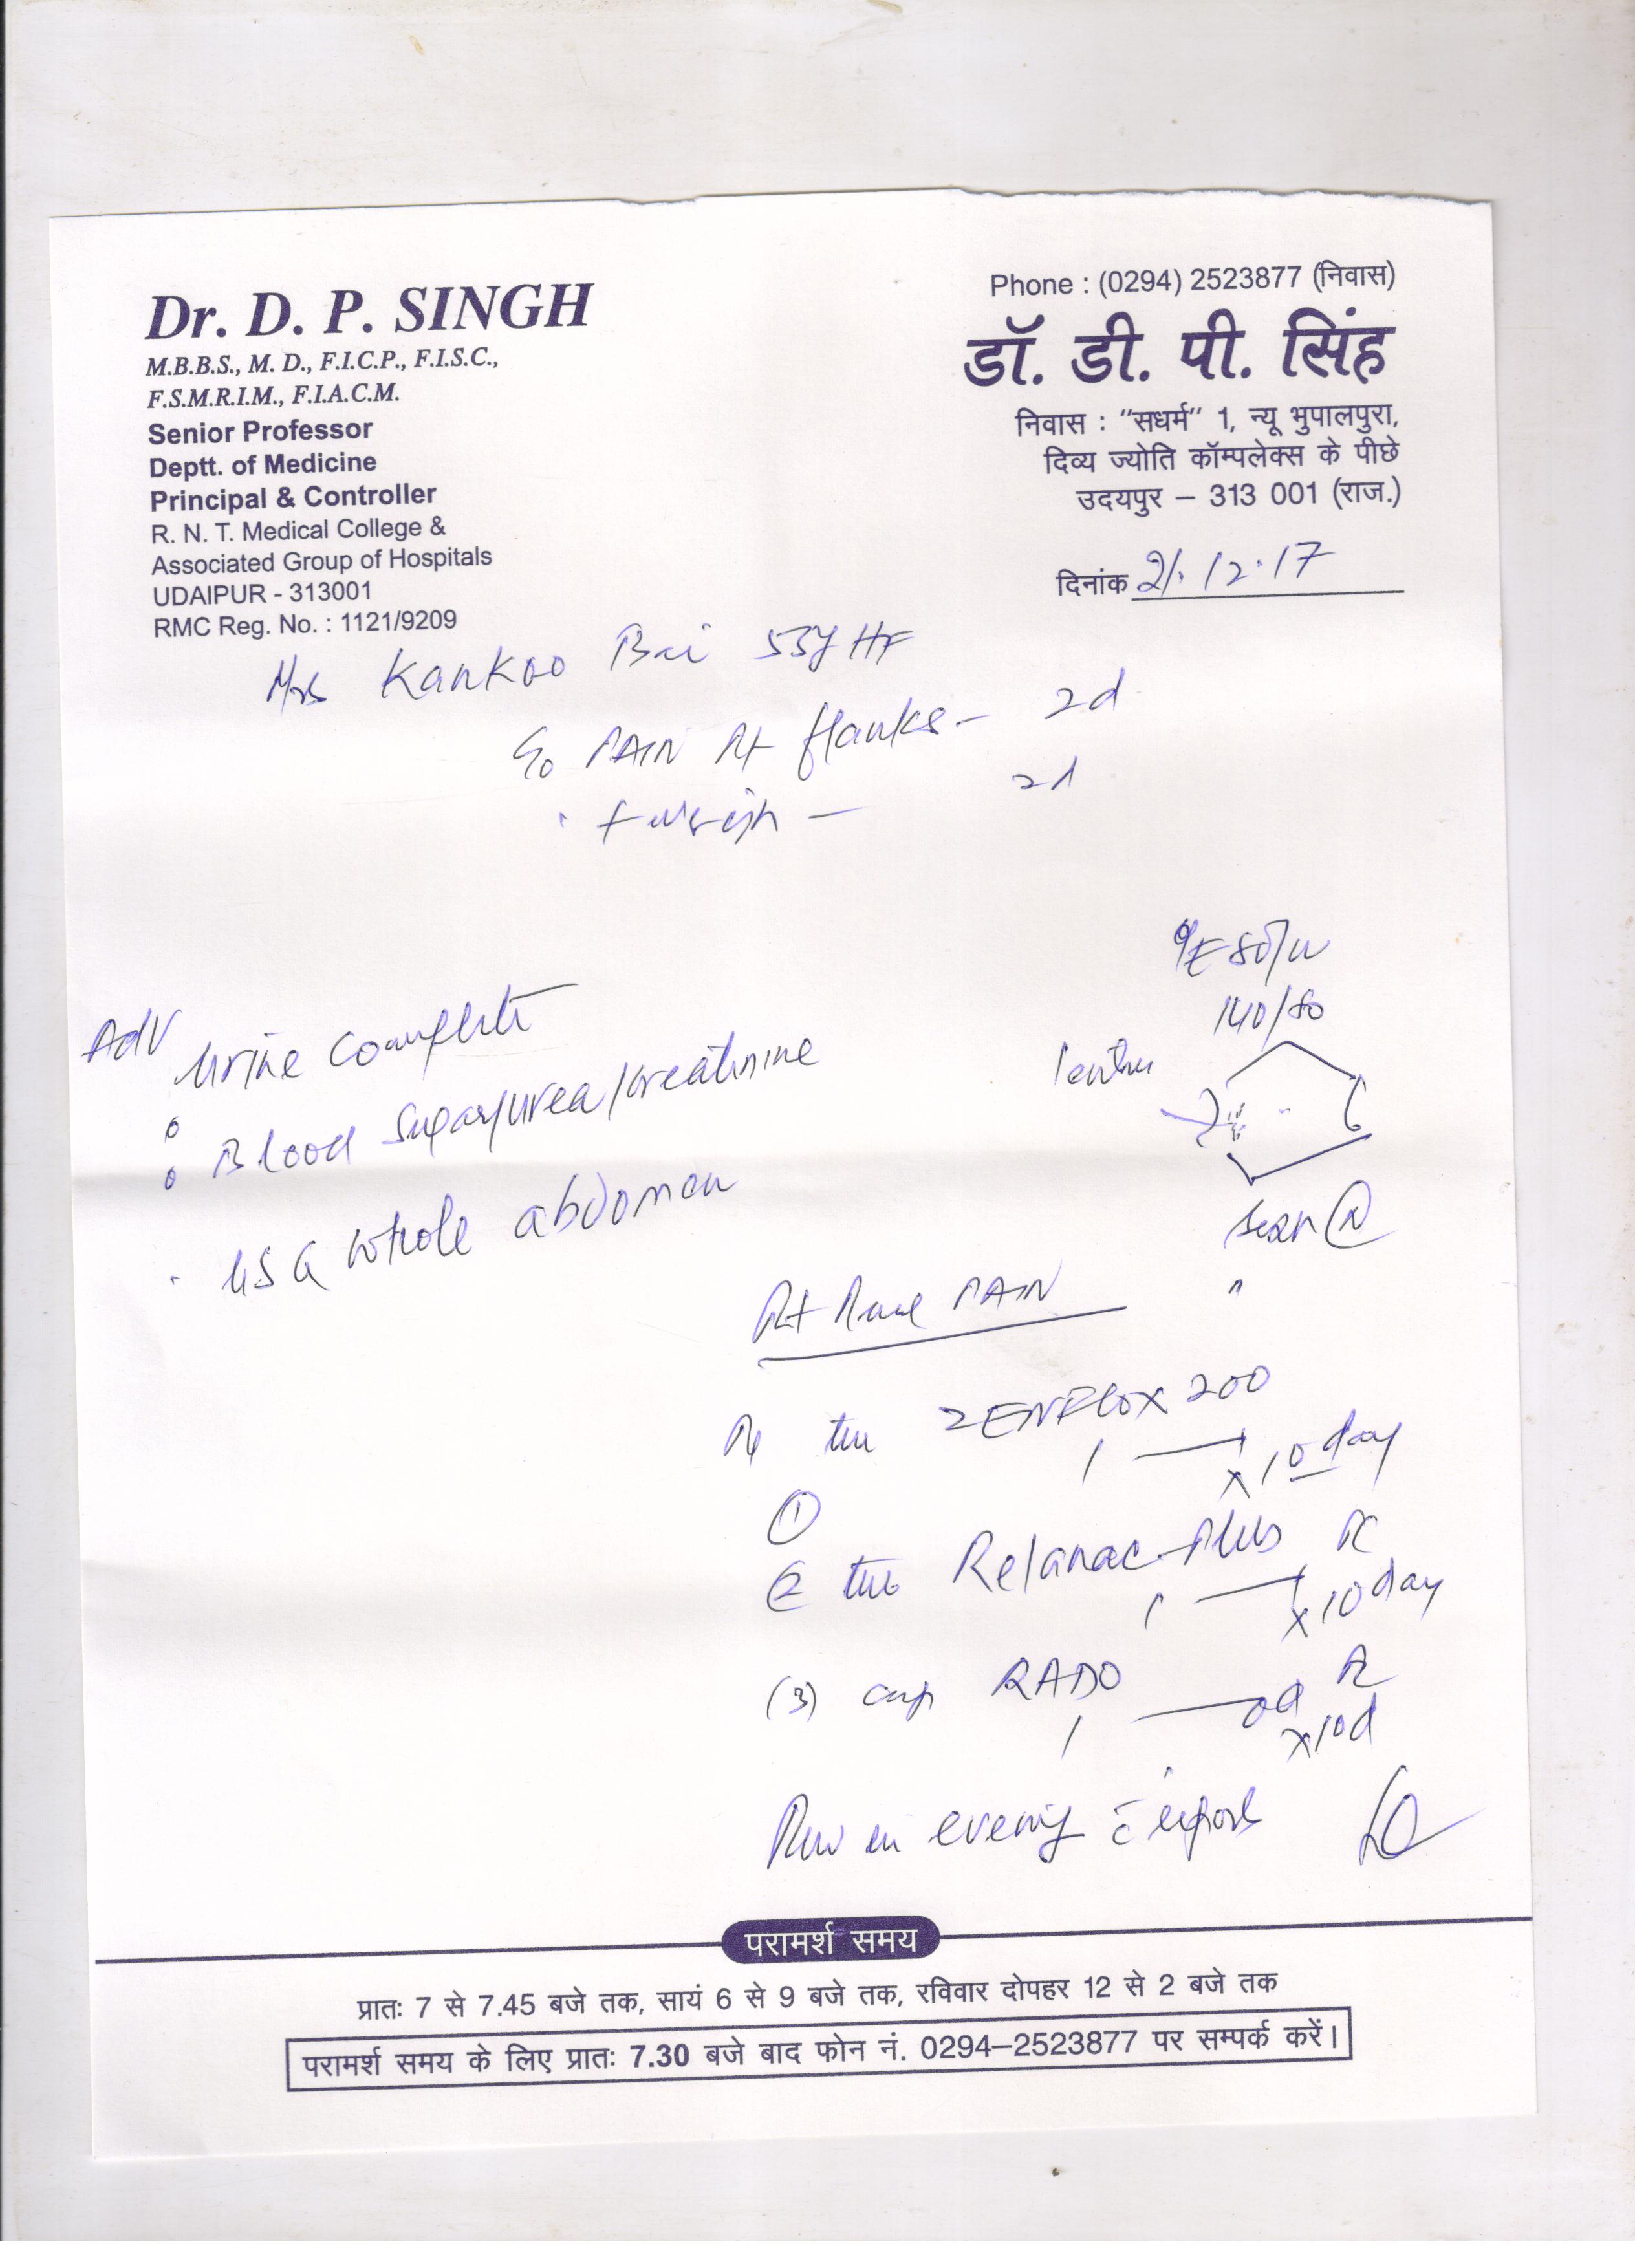 Dr. D. P. SINGH
M.B.B.S., M. D., F.I.C.P., F.I.S.C.,
F.S.M.R.I.M., F.I.A.C.M.
Senior Professor
Deptt. of Medicine
Principal & Controller
R. N. T. Medical College &
Associated Group of Hospitals
UDAIPUR - 313001
RMC Reg. No. : 1121/9209
Phone : (0294) 2523877 (निवास)
डॉ. डी. पी. सिंह
निवास : “सधर्म” 1, न्यू भुपालपुरा,
दिव्य ज्योति कॉम्पलेक्स के पीछे
उदयपुर – 313 001 (राज.)
दिनांक 21.12.17
Mrs Kankoo Bai 55y HF
C/o PAIN Rt flanks – 2d
– 2d
O/E 80/m
140/80
Adv Urine Complete
Blood Sugar/urea/creatinine
USG whole abdomen
Rt Renal PAIN
ZENFLOX 200
1 — x 10 day
①
② Relanac Plus
1 — x 10 day
(3) cap RADO
1 — OD
x 10d
Rev in evening c̄ reports
परामर्श समय
प्रातः 7 से 7.45 बजे तक, सायं 6 से 9 बजे तक, रविवार दोपहर 12 से 2 बजे तक
परामर्श समय के लिए प्रातः 7.30 बजे बाद फोन नं. 0294–2523877 पर सम्पर्क करें।